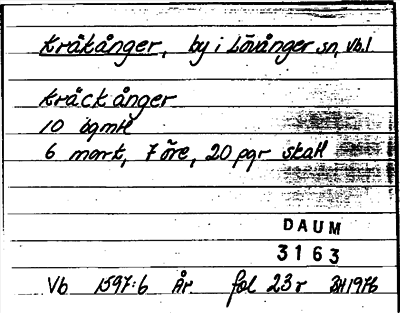 Kråkånger, by i Lövånger sn, Vb.l
Kråckånger
10 bgmH
6 mark, 7 öre, 20 pgr skatt
DAUM
3163
Vb 1597:6 År fol 23 r BH 1976